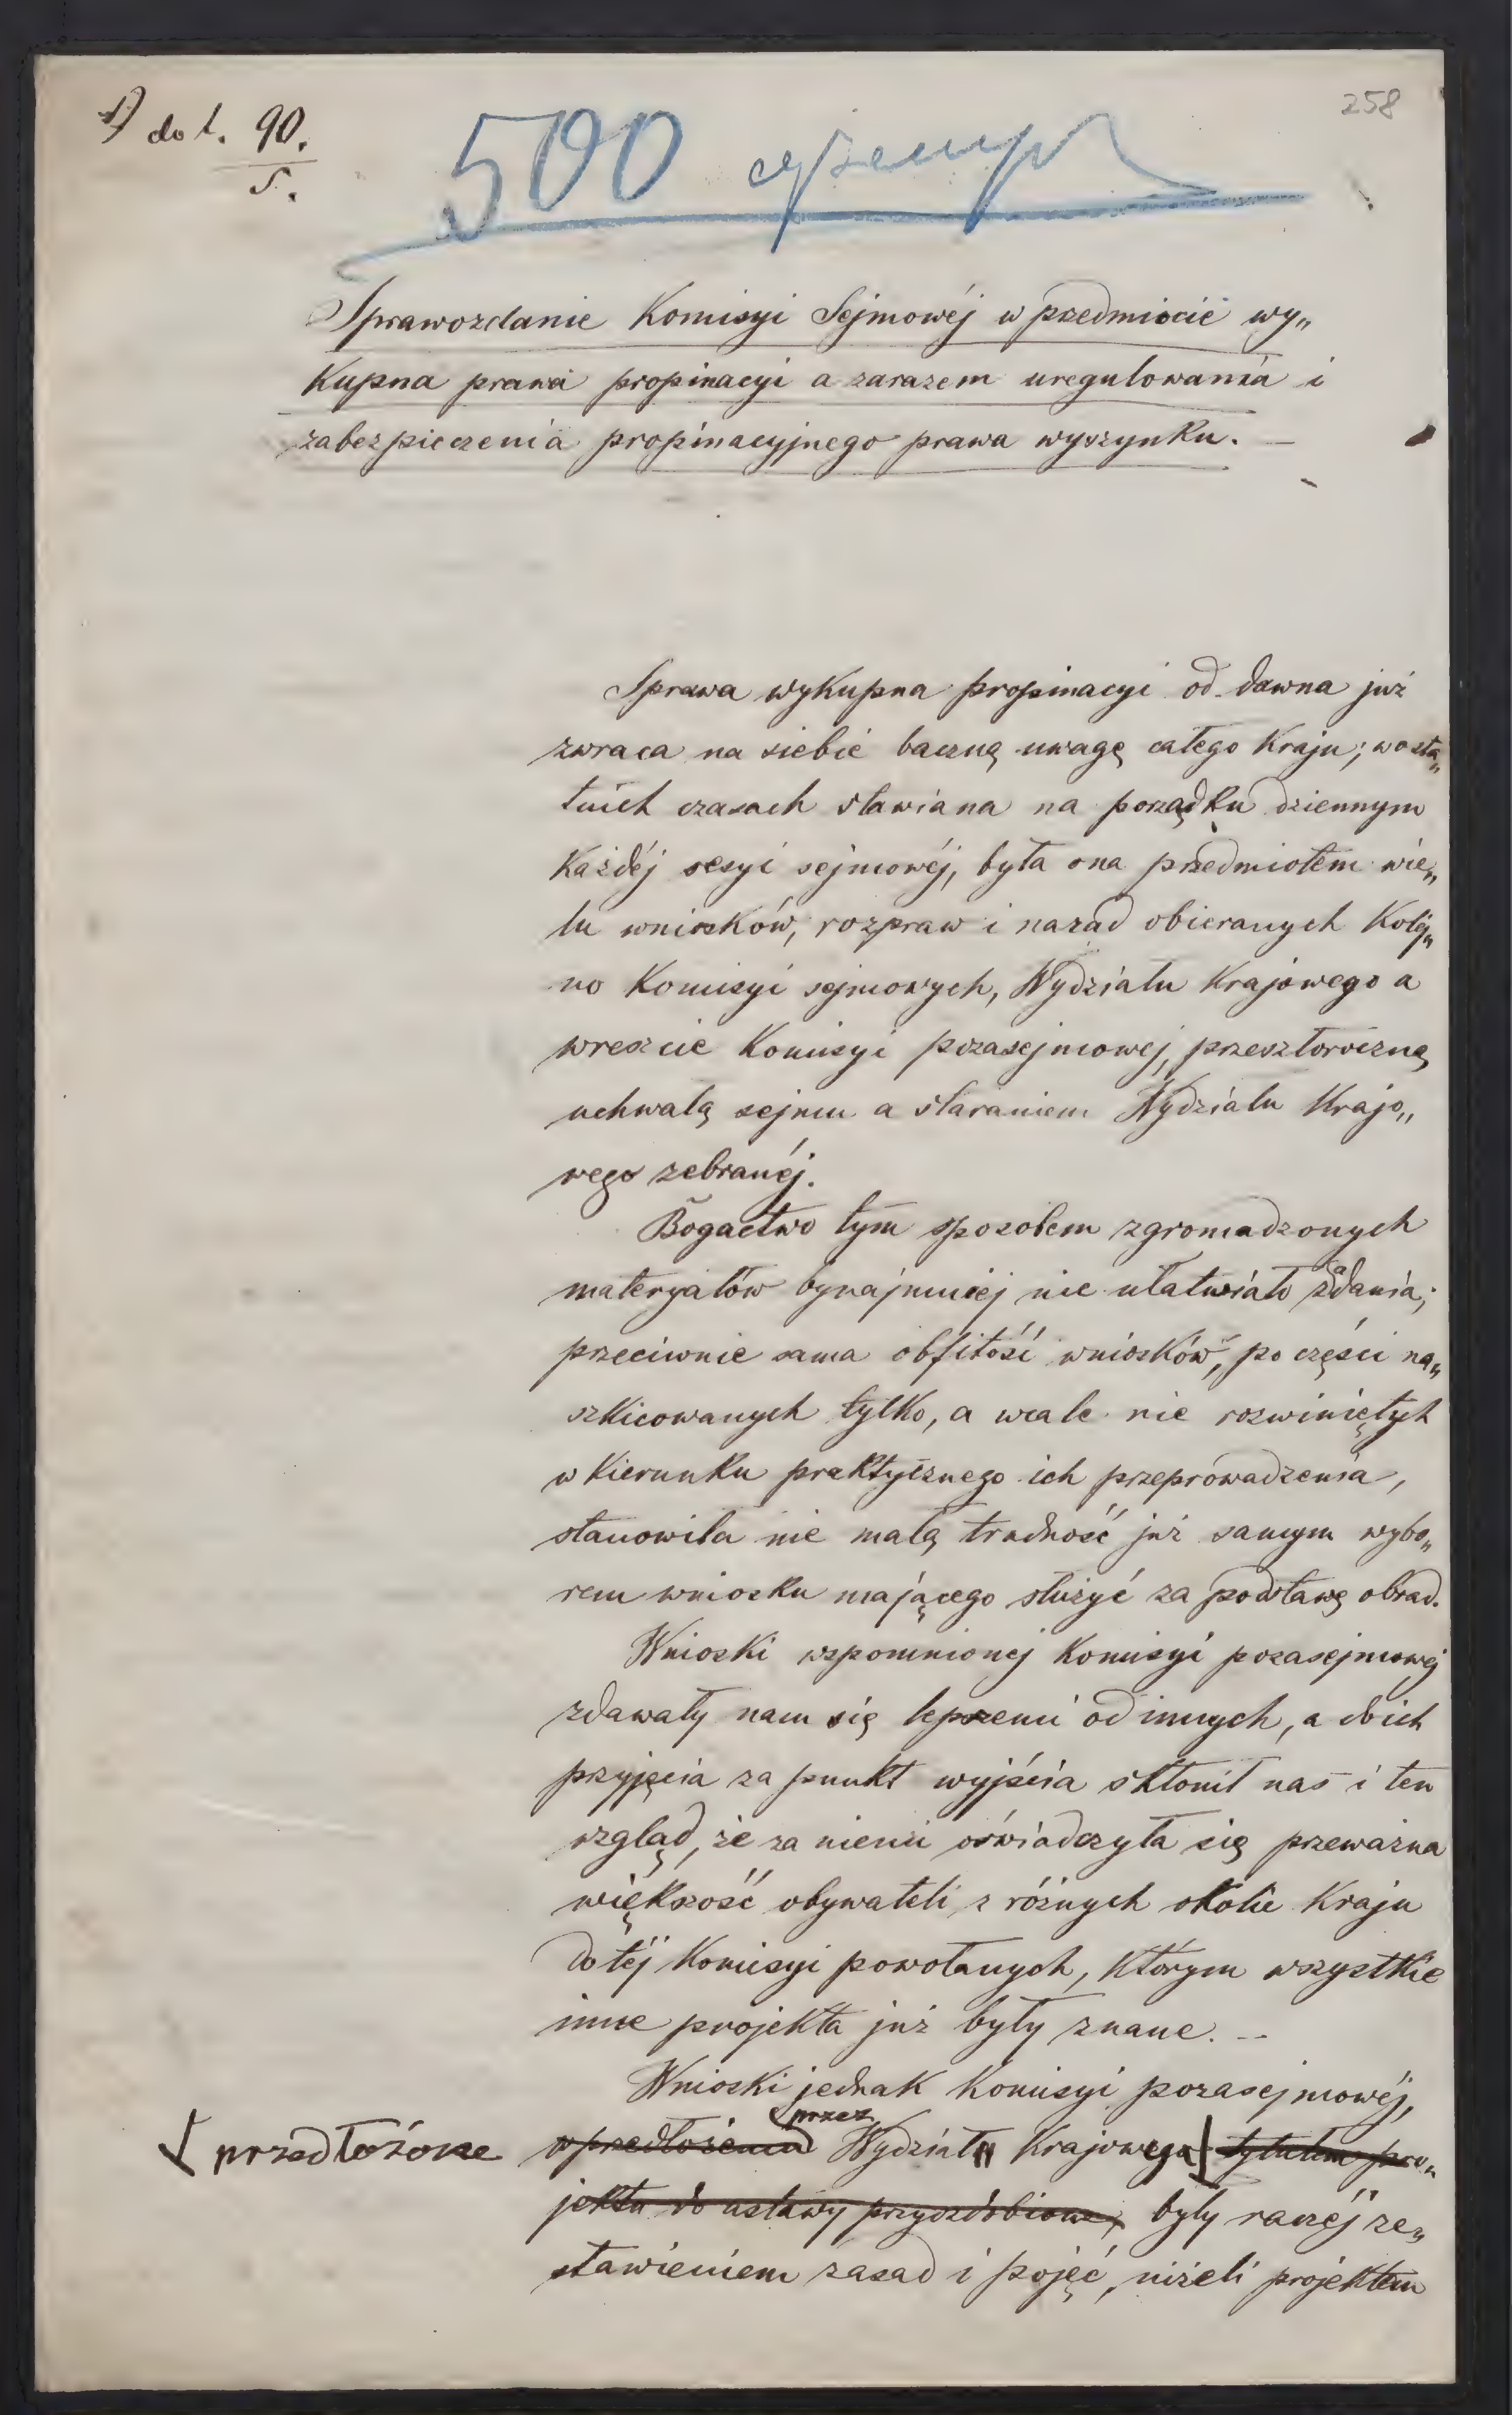 1) do l. 90.
S.
258
500 egzempl
Sprawozdanie Komisyi Sejmowéj w przedmiocie wy„
kupna prawa propinacyi a zarazem uregulowania i
zabezpieczenia propinacyjnego prawa wyszynku. —
Sprawa wykupna propinacyi od dawna już
zwraca na siebie baczną uwagę całego Kraju; w osta„
tnich czasach stawiana na porządku dziennym
każdéj sesyi sejmowéj, była ona przedmiotem wie„
lu wniosków, rozpraw i narad obieranych kolej„
no Komisyi sejmowych, Wydziału Krajowego a
wreszcie Komisyi pozasejmowej, przeszłoroczną
uchwałą sejmu a staraniem Wydziału Krajo„
wego zebranéj.
Bogactwo tym sposobem zgromadzonych
materyałów bynajmniej nie ułatwiało zadania;
przeciwnie sama obfitość wniosków, po części na„
szkicowanych tylko, a wcale nie rozwiniętych
w kierunku praktycznego ich przeprowadzenia,
stanowiła nie małą trudność już samym wybo„
rem wniosku mającego służyć za podstawę obrad.
Wnioski wspomnionej Komisyi pozasejmowej
zdawały nam się lepszemi od innych, a do ich
przyjęcia za punkt wyjścia skłonił nas i ten
wzgląd, że za niemi oświadczyła się przeważna
większość obywateli z różnych okolic Kraju
do téj Komisyi powołanych, którym wszystkie
inne projekta już były znane. —
Wnioski jednak Komisyi pozasejmowéj,
przedłożone w przedłożeniu przez Wydział Krajowego tytułem pro„
jektu do ustawy przyozdobione, były raczéj ze„
stawieniem zasad i pojęć, niżeli projektem